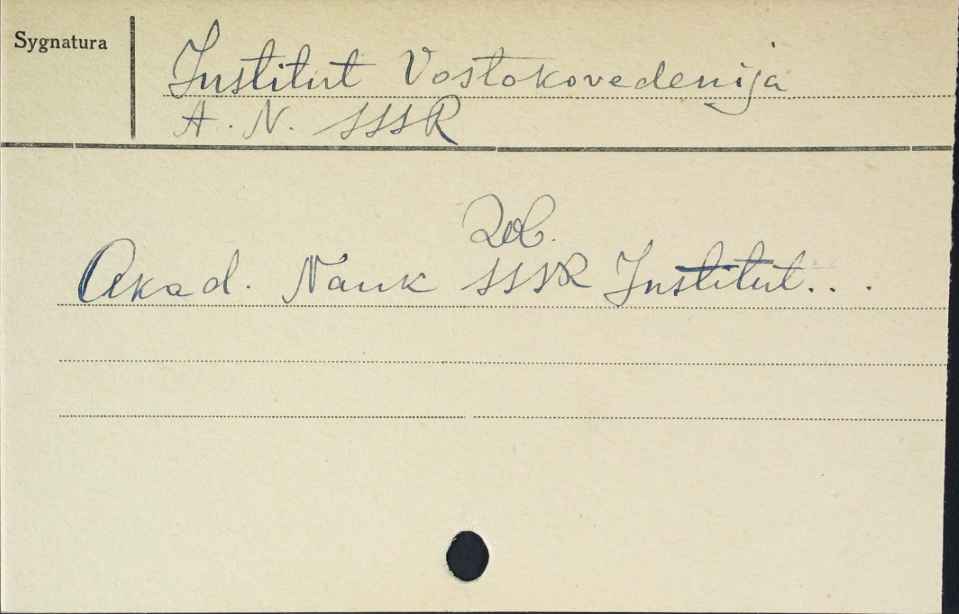 Sygnatura
Institut Vostokovedenija
A. N. SSSR
Zob.
Akad. Nauk SSSR Institut...